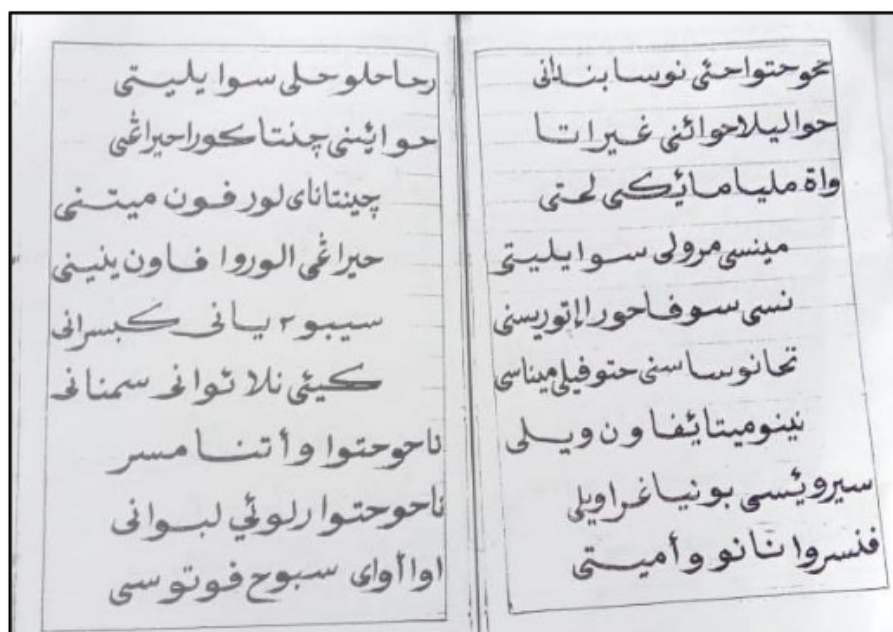 محوحتواحئي نوسابنداني
حواليلاحوائني غيراتا
واة مليامائكي لحتى
مينسي مرولى سوايليتي
نسي سوفاحورا إتوريسني
تحانوساسني حتوفيلي ميناسي
نينوميتائفاون ويلى
سيروئسي بونياغراويلي
فنسروا نانو وأميتى
رحاحلوحلى سوايليتى
حوائننى چنتاكوراحيراڠي
چينتاناى لورفون ميتنى
حيراڠي الوروا فاون ينينى
سيبو٢ يانى كبسرانى
كيئي نلائوانى سمنانى
ناحوحتوا وأتنا مسر
ناحوحتوا رلوئي لبوانى
اواأواى سبوح فوتوسى